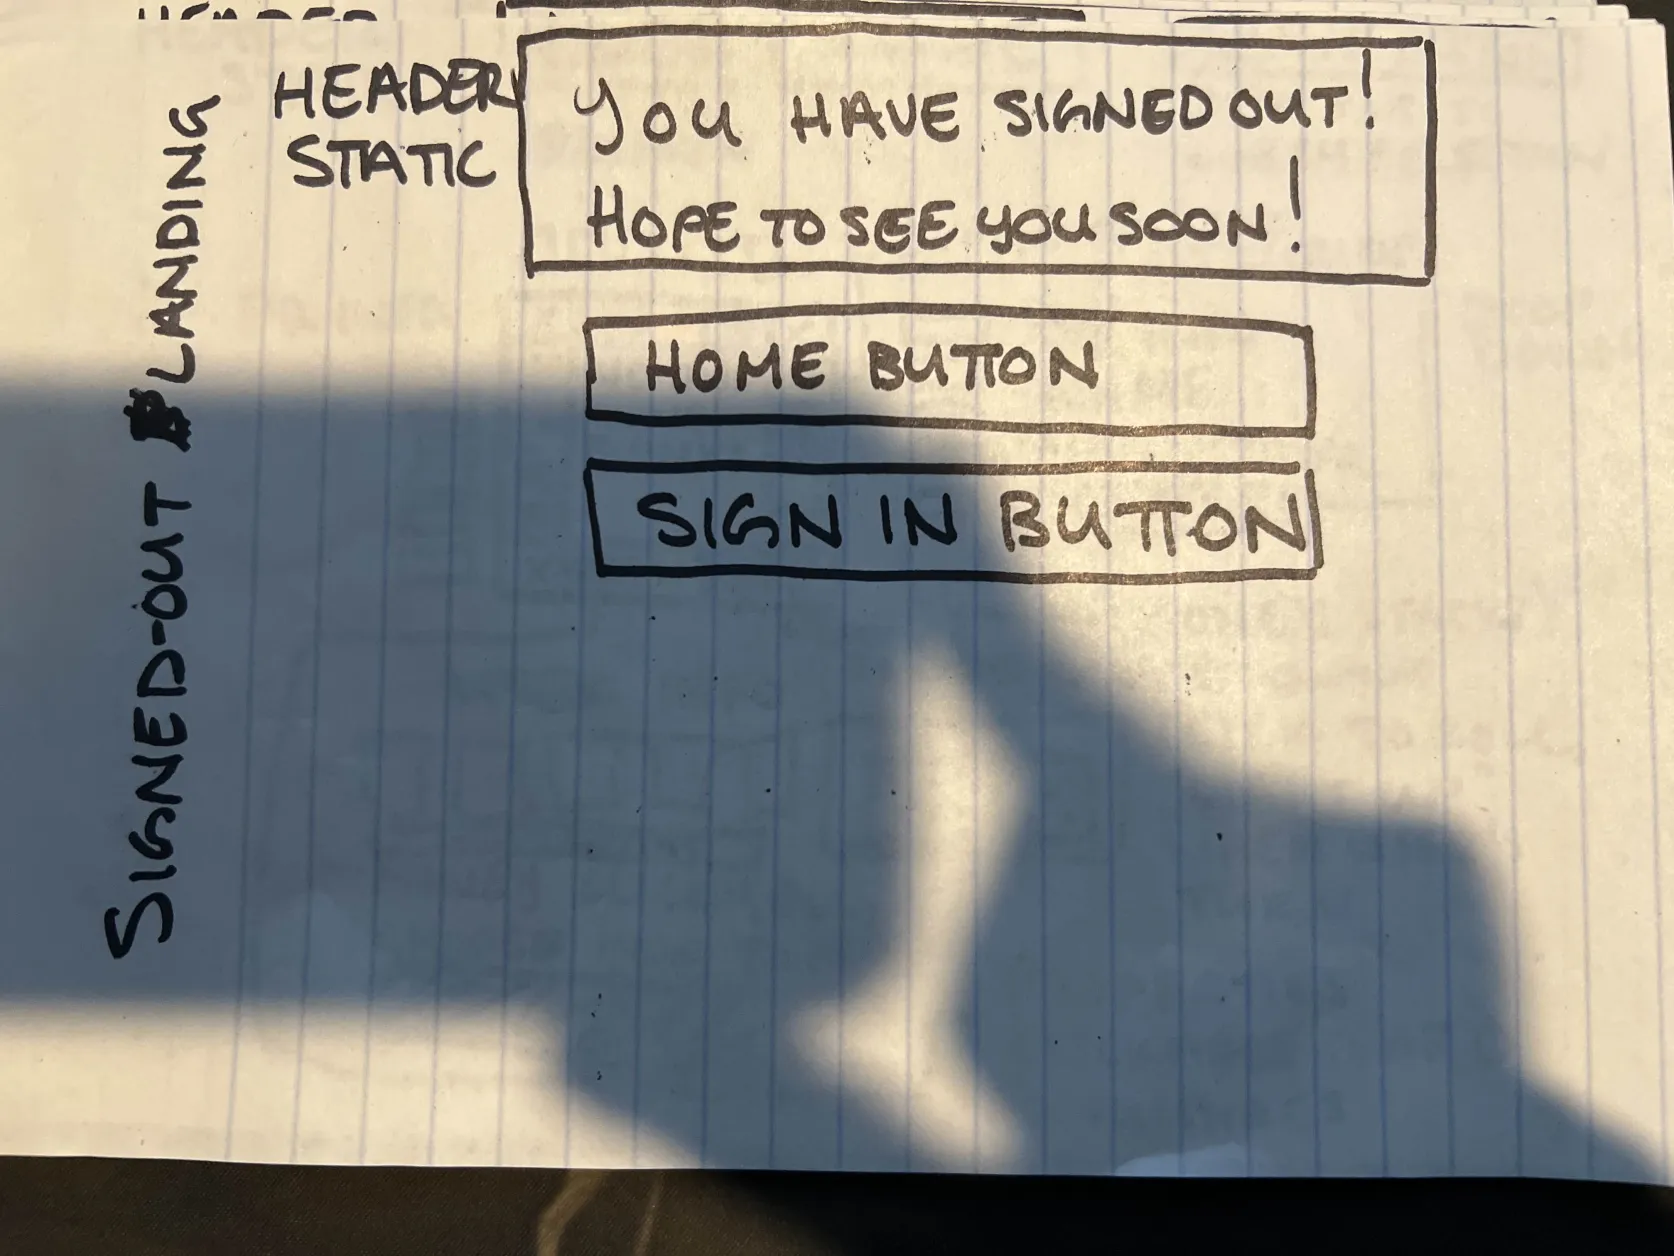 HEADER
SIGNED-OUT LANDING
HEADER
STATIC
YOU HAVE SIGNED OUT!
HOPE TO SEE YOU SOON!
HOME BUTTON
SIGN IN BUTTON